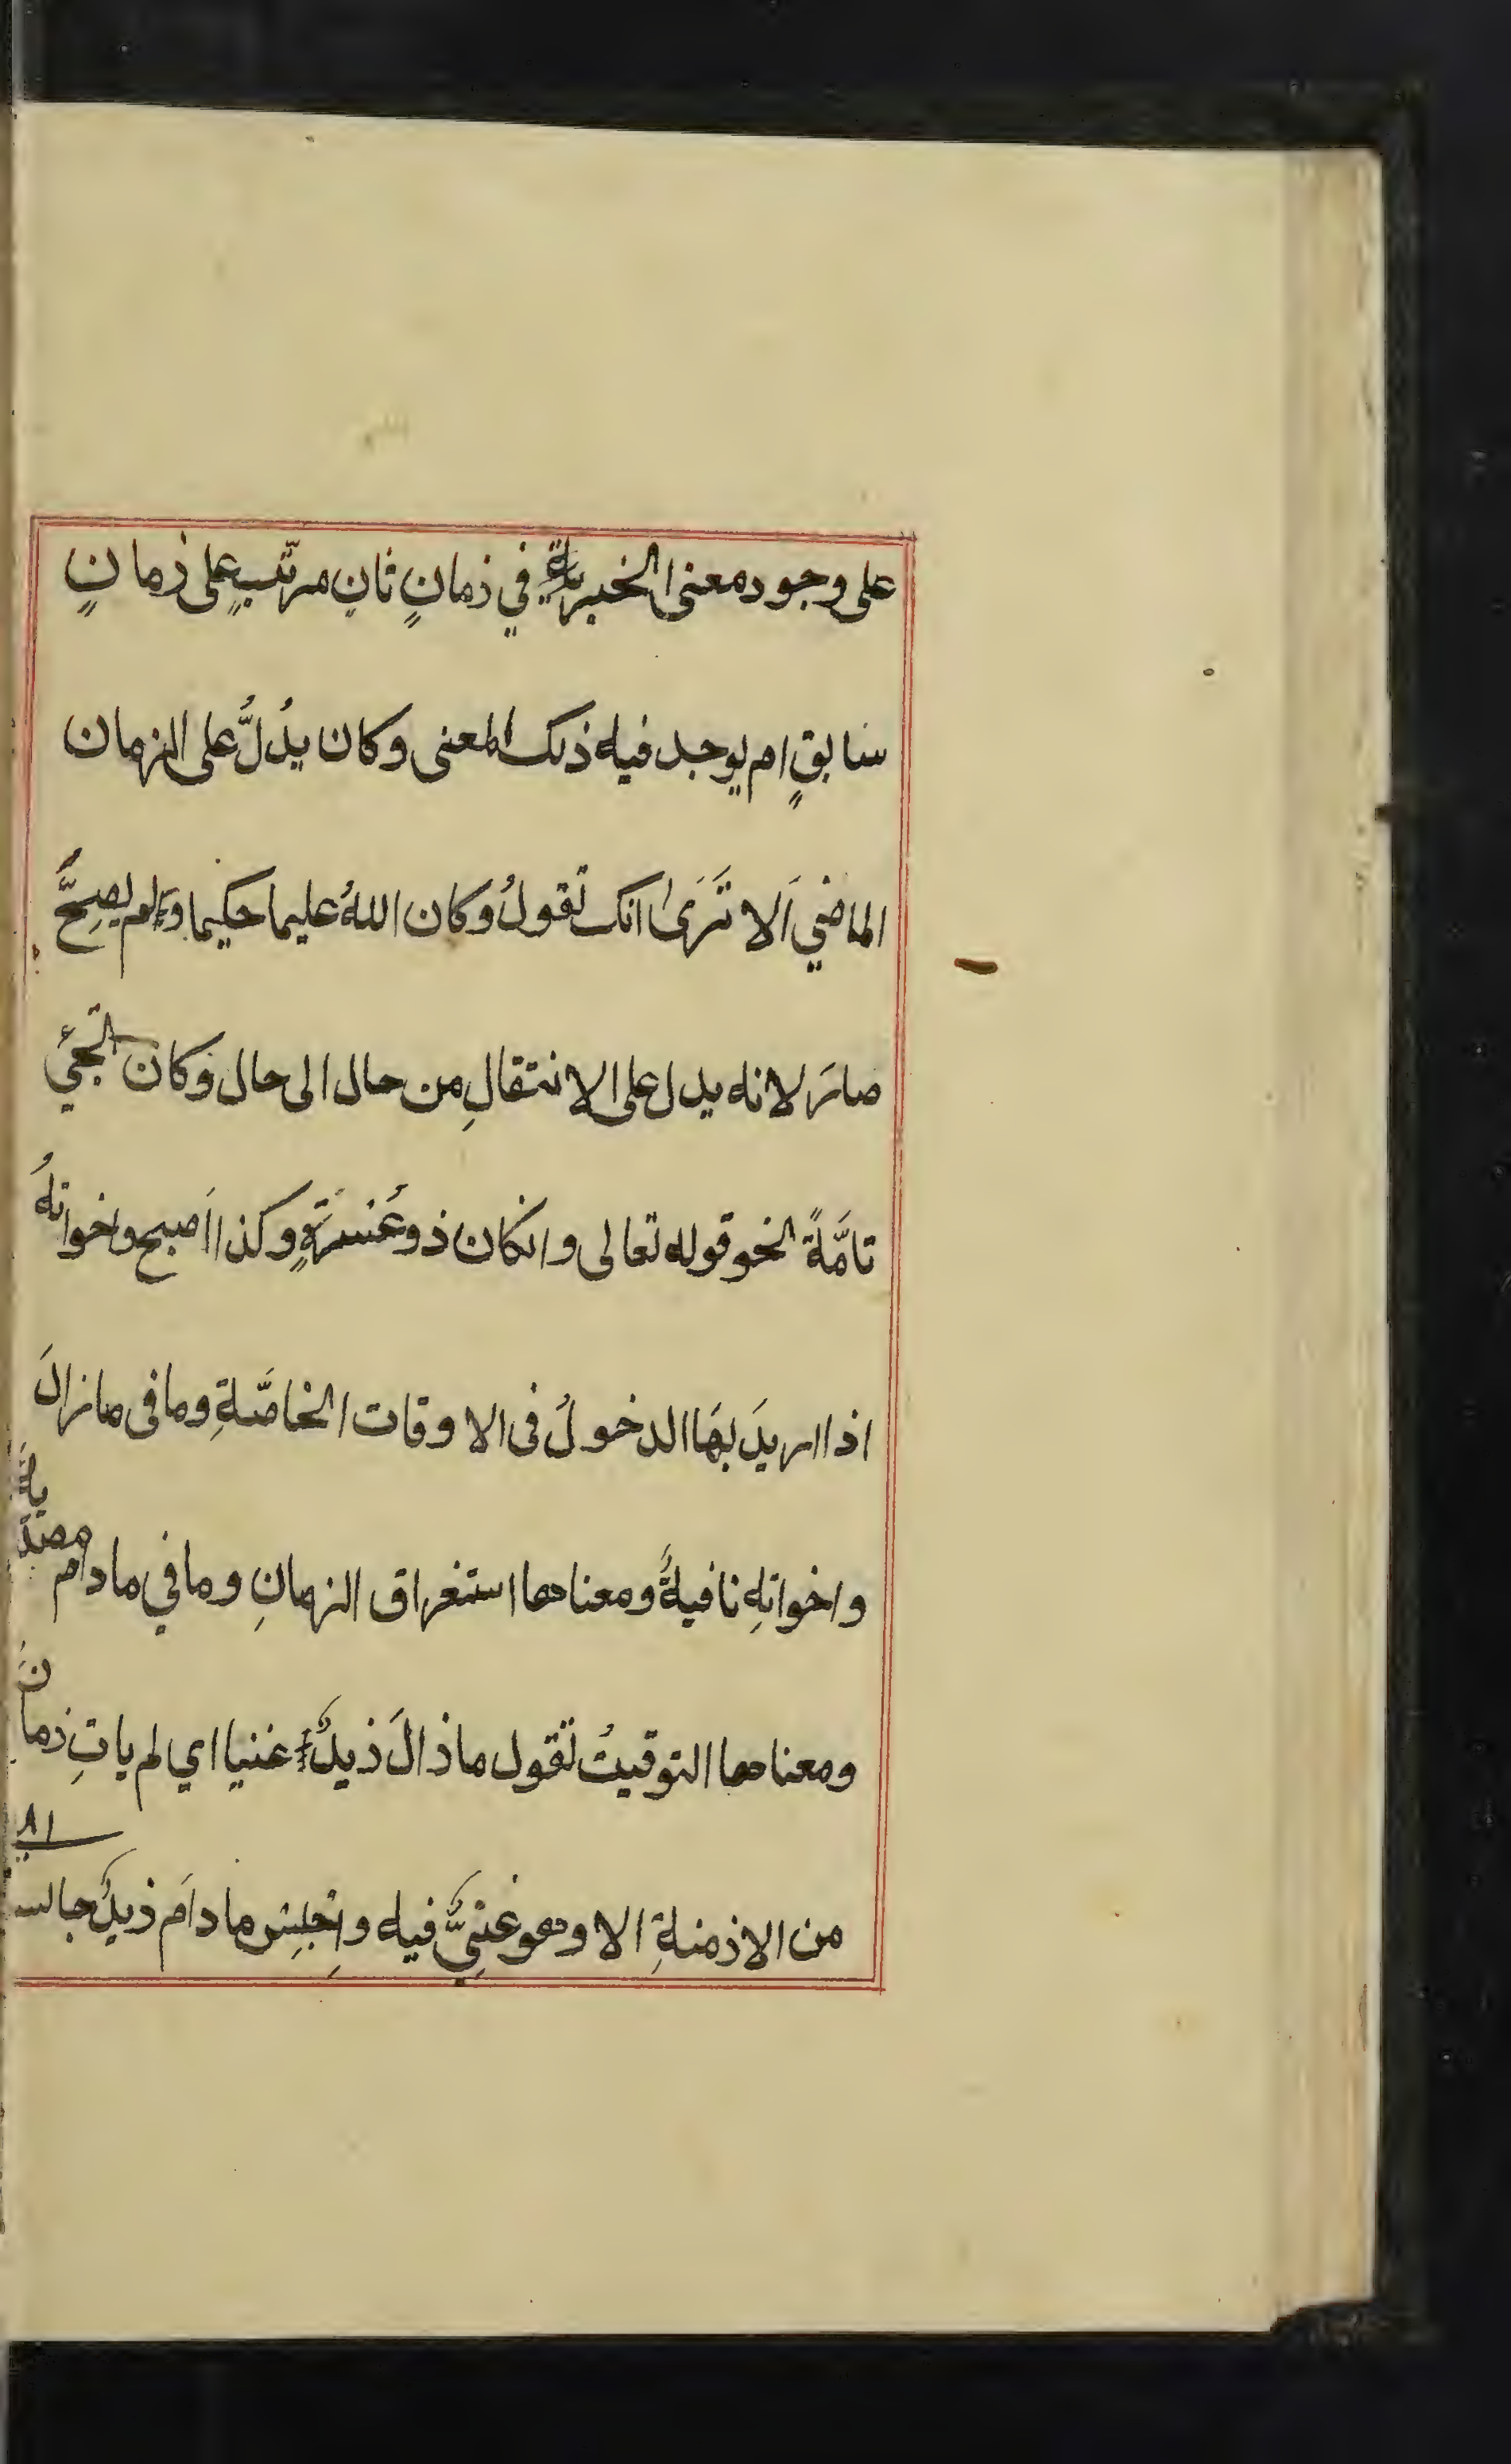 على وجود معنى الخبرية في ذمانٍ ثانٍ مرتبٍ على ذمانٍ
سابقٍ ام يوجد فيه ذلك المعنى وكان يدُلُّ على الزمان
الماضي اَلا تَرَىٰ انك تقولُ وَكان اللهُ عليما حكيما ولم يصِحَّ
صارَ لانه يدل على الانتقالِ من حال الى حال وَكان تجئي
تامَّةً نحو قوله تعالى وانكان ذو عُسْرَةٍ وكذا اَصبح واخواتهُ
اذا اريدَ بهَا الدخولُ فى الاوقات الخاصَّةِ وما فى مازالَ
واخواتهِ نافيةٌ ومعناها استغراق الزمانِ وما في مادام مصدَّيةٌ
ومعناها التوقيتُ تقول ماذالَ ذيدٌ غنيا اي لم ياتِ ذمانٌ
من الاذمنةِ الا وهو غنِيٌّ فيه واِجْلِس مادامَ ذيدٌ جالسـ
٨١